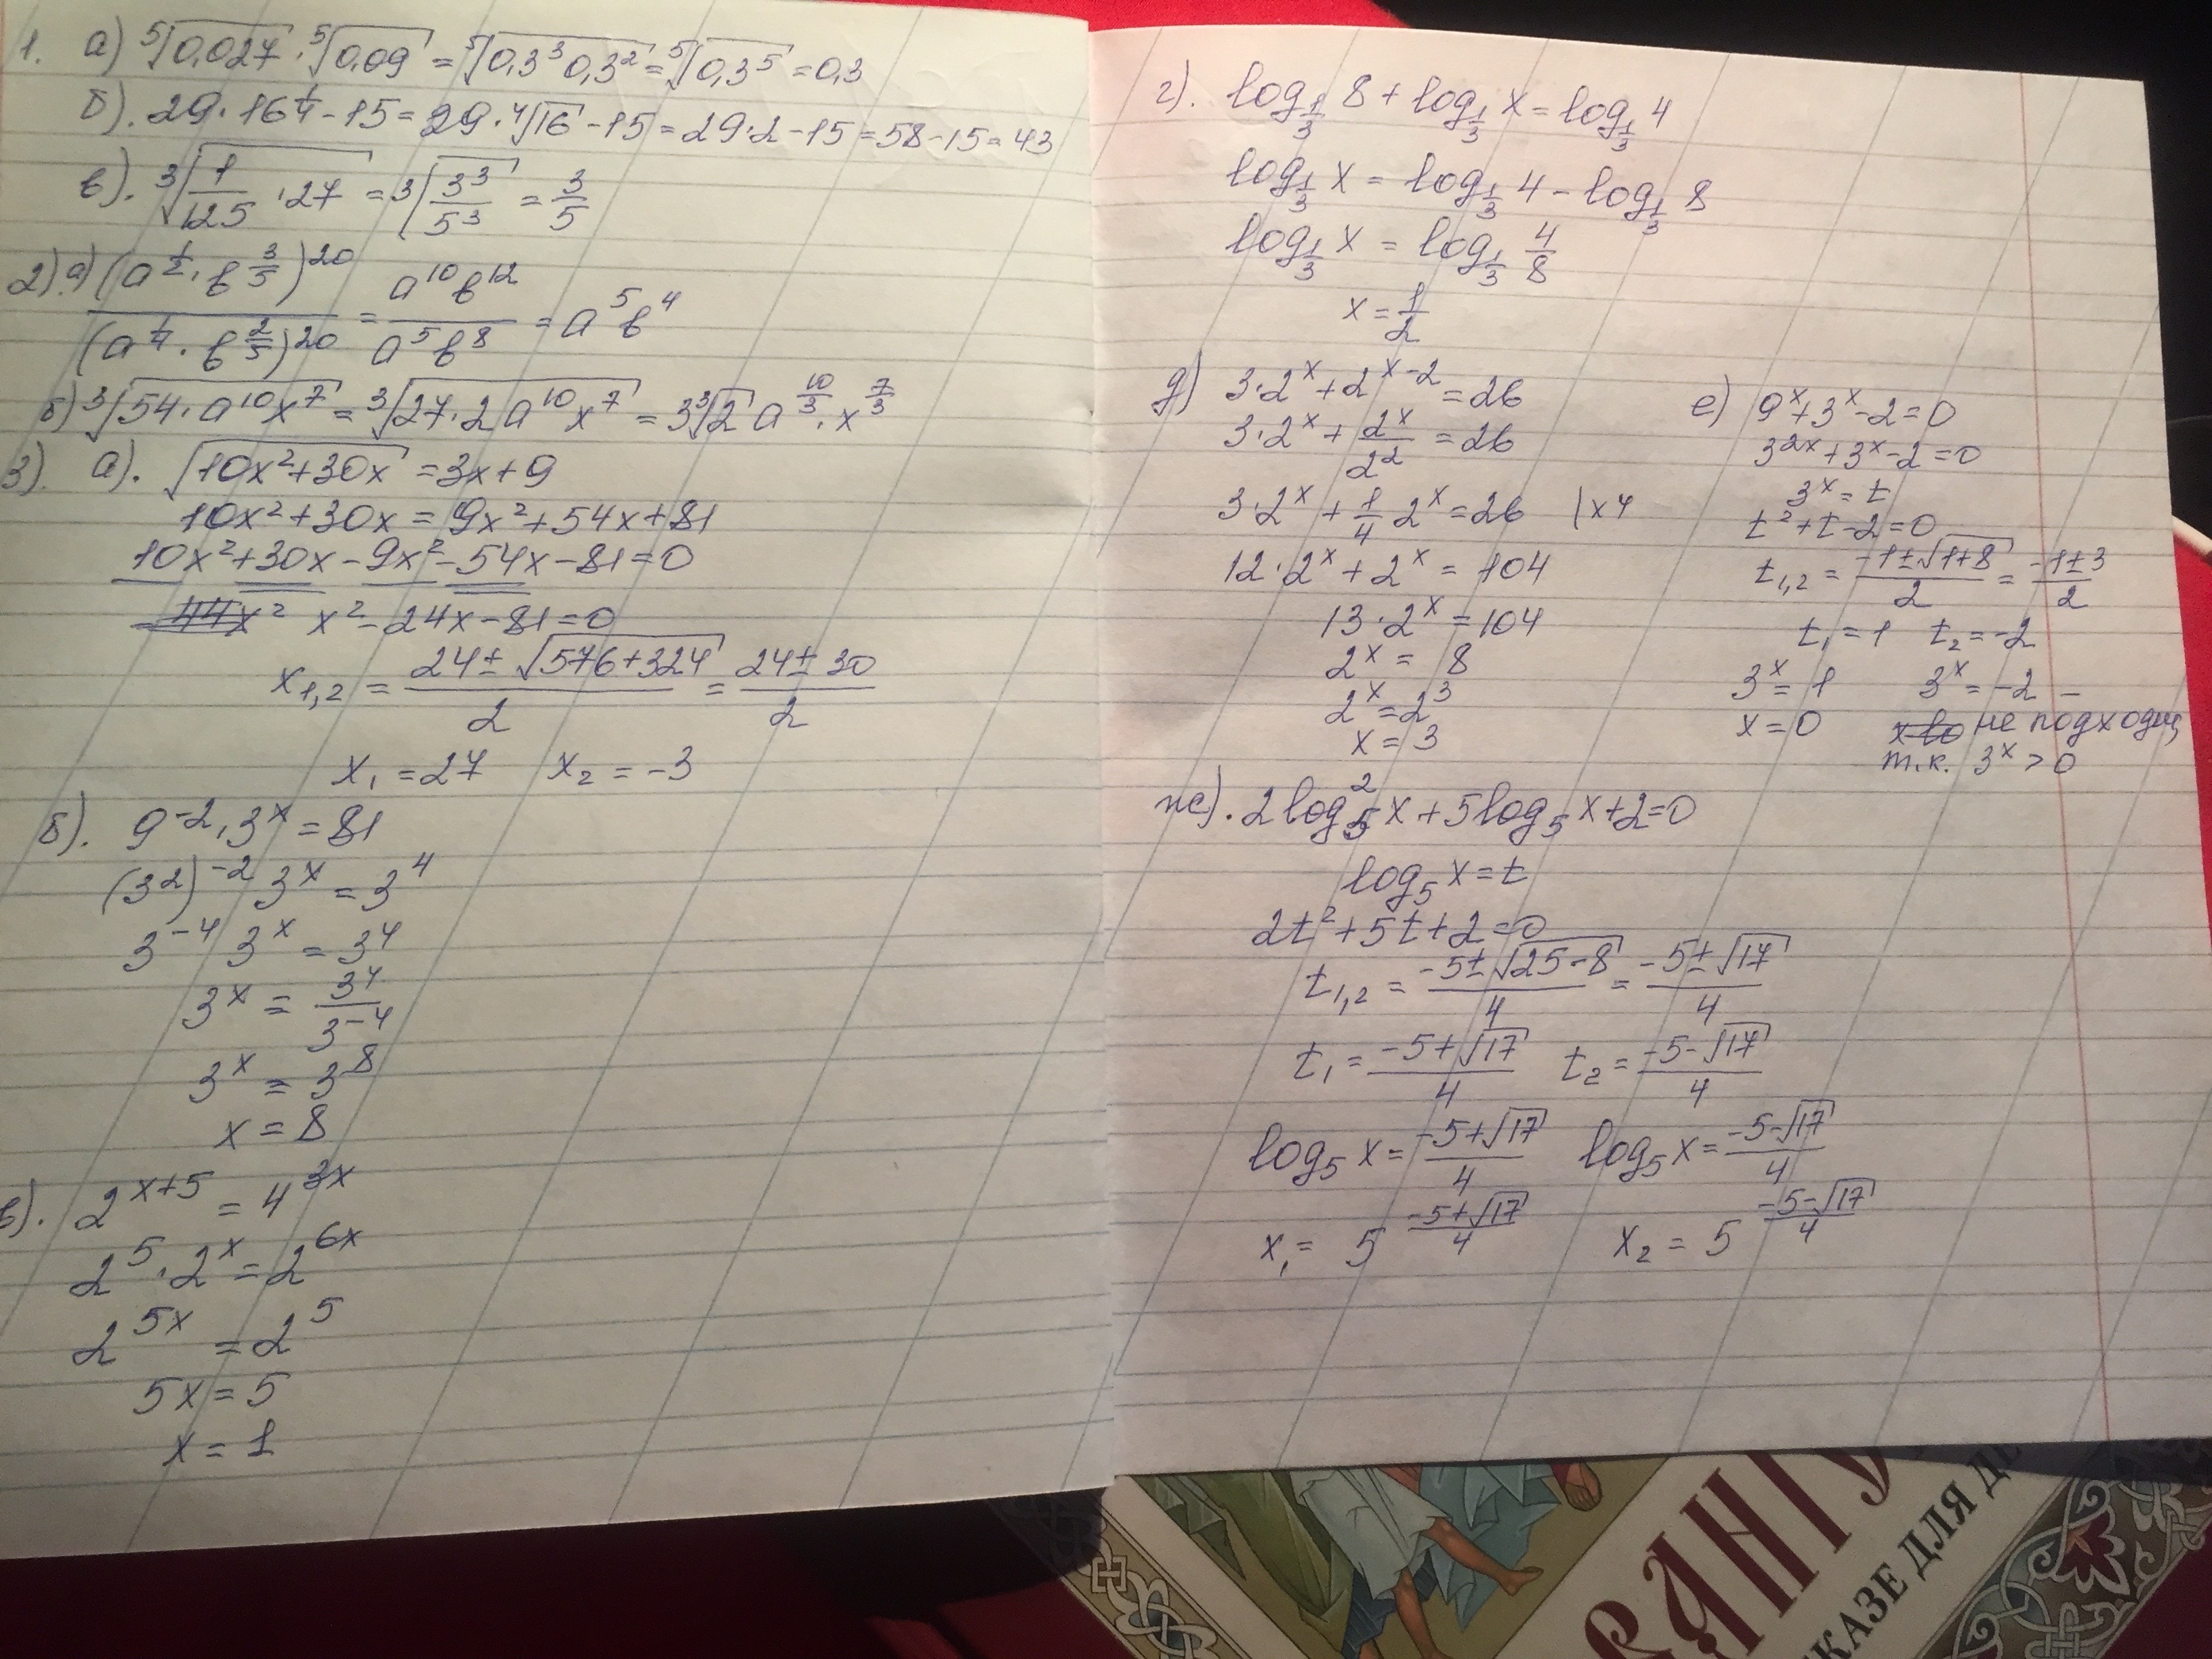 1. а) ⁵√0,027 · ⁵√0,09 = ⁵√0,3³ 0,3² = ⁵√0,3⁵ = 0,3
б). 29 · 16^(1/4) - 15 = 29 · ⁴√16 - 15 = 29·2 - 15 = 58 - 15 = 43
в). ³√(1/125 · 27) = ³√(3³/5³) = 3/5
2) а) (a^(1/2) · b^(3/5))^20 / (a^(1/4) · b^(2/5))^20 = a^10 b^12 / a^5 b^8 = a^5 b^4
б) ³√54 · a^10 x^7 = ³√27·2 a^10 x^7 = 3 ³√2 a^(10/3) · x^(7/3)
3). а). √10x²+30x = 3x+9
10x²+30x = 9x²+54x+81
10x²+30x - 9x² - 54x - 81 = 0
x² - 24x - 81 = 0
x1,2 = (24 ± √576+324)/2 = (24 ± 30)/2
x₁ = 27 x₂ = -3
б). 9^-2 · 3^x = 81
(3²)^-2 3^x = 3^4
3^-4 3^x = 3^4
3^x = 3^4/3^-4
3^x = 3^8
x = 8
в). 2^(x+5) = 4^(3x)
2^5 · 2^x = 2^(6x)
2^(5x) = 2^5
5x = 5
x = 1
г). log_(1/3) 8 + log_(1/3) x = log_(1/3) 4
log_(1/3) x = log_(1/3) 4 - log_(1/3) 8
log_(1/3) x = log_(1/3) 4/8
x = 1/2
д) 3·2^x + 2^(x-2) = 26
3·2^x + 2^x/2² = 26
3·2^x + 1/4 2^x = 26 | x4
12·2^x + 2^x = 104
13·2^x = 104
2^x = 8
2^x = 2³
x = 3
е) 9^x + 3^x - 2 = 0
3^(2x) + 3^x - 2 = 0
3^x = t
t² + t - 2 = 0
t1,2 = (-1 ± √1+8)/2 = (-1 ± 3)/2
t₁ = 1 t₂ = -2
3^x = 1 3^x = -2 -
x = 0 не подходит,
т.к. 3^x > 0
ж). 2 log₅² x + 5 log₅ x + 2 = 0
log₅ x = t
2t² + 5t + 2 = 0
t1,2 = (-5 ± √25-8)/4 = (-5 ± √17)/4
t₁ = (-5+√17)/4 t₂ = (-5-√17)/4
log₅ x = (-5+√17)/4 log₅ x = (-5-√17)/4
x₁ = 5^((-5+√17)/4) x₂ = 5^((-5-√17)/4)